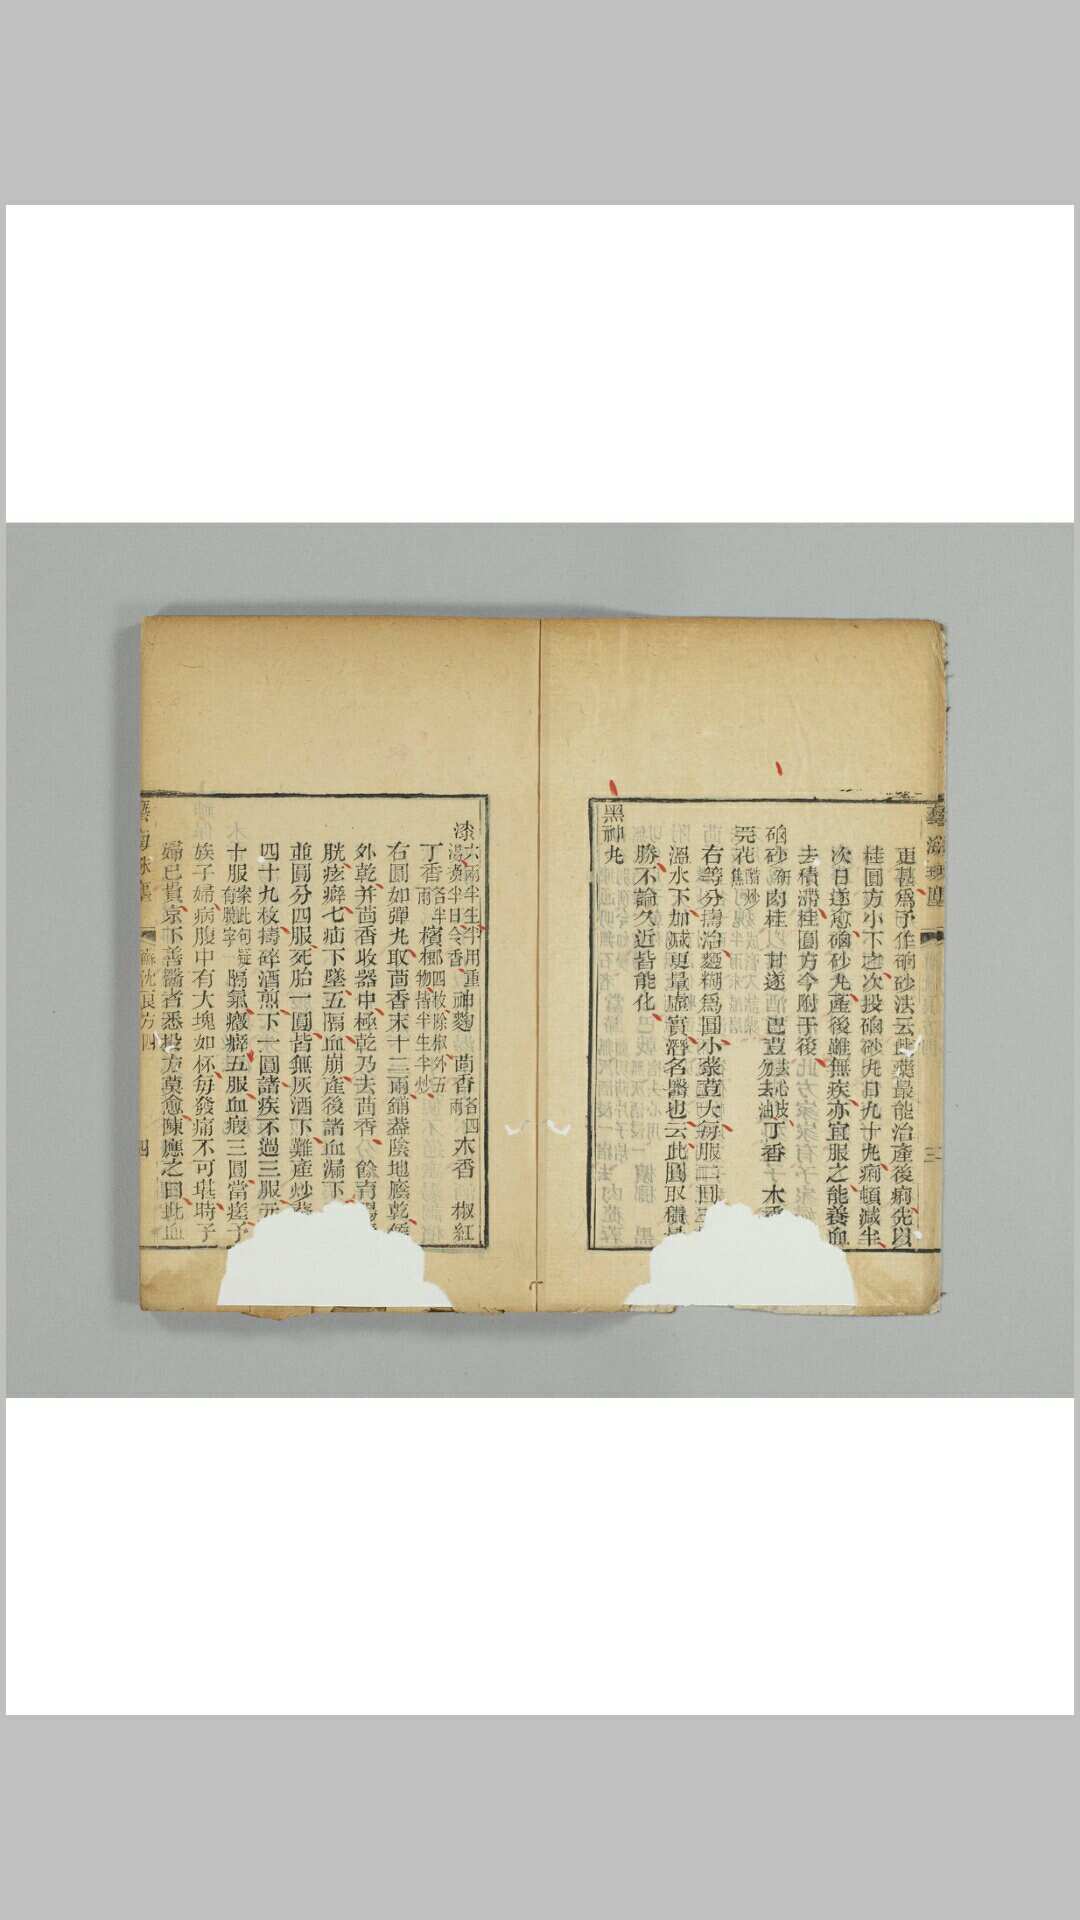 更甚爲予作硇砂法云此藥最能治產後痢先以
桂圓方小下之次投硇砂丸日九十丸痢頓減半
次日遂愈硇砂丸產後雖無疾亦宜服之能養血
去積滯桂圓方今附于後
硇砂研 肉桂 甘遂 巴豆去心皮勿去油 丁香 木香
芫花醋炒焦
右等分擣治麪糊爲圓小菉荳大每服三圓
溫水下加減更量虛實潛名醫也云此圓取積
勝不論久近皆能化
黑神丸
漆六兩半生半用重湯煑半日令香 神麴 茴香各四兩 木香 椒紅
丁香各半兩 檳榔四枚除椒外五物皆半生半炒
右圓如彈丸取茴香末十二兩鋪蓋陰地廕乾
外乾并茴香收器中極乾乃去茴香 餘育腸
胱痃癖七疝下墜五膈血崩產後諸血漏下
並圓分四服死胎一圓皆無灰酒下難產炒
四十九枚擣碎酒煎下一圓諸疾不過三服元
十服案此句疑有脫字膈氣癥癖五服血瘕三圓當瘥予
族子婦病腹中有大塊如杯每發痛不可堪時子
婦已貴京下善醫者悉投方莫愈陳應之曰此血
藝海珠塵
三
藝海珠塵
蘇沈良方四
四